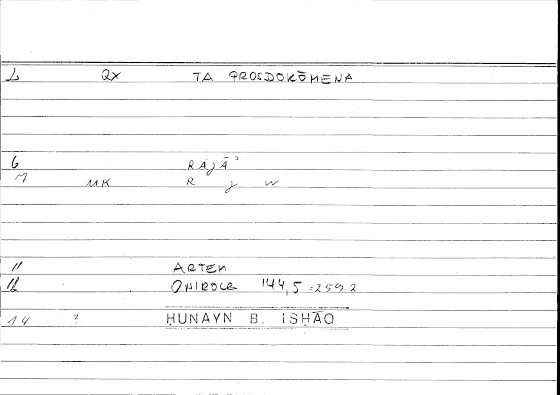 1 QX TA PROSDOKŌMENA
6 RAJĀʾ
7 MK R J W
11 ARTEM
12 ONIROCR 144,5 = 259.2
14 ? ḤUNAYN B. ISḤĀQ